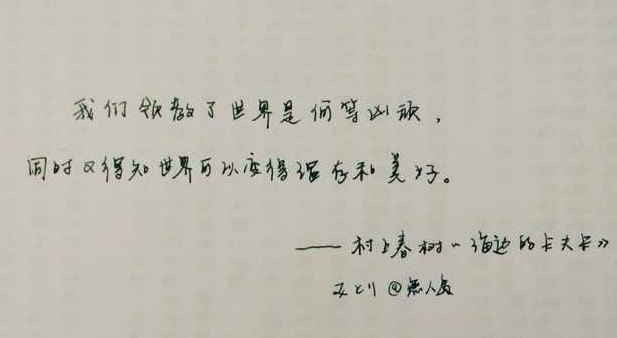 我们领教了世界是何等凶顽，
同时又得知世界可以变得温存和美好。
——村上春树《海边的卡夫卡》
@无人岛